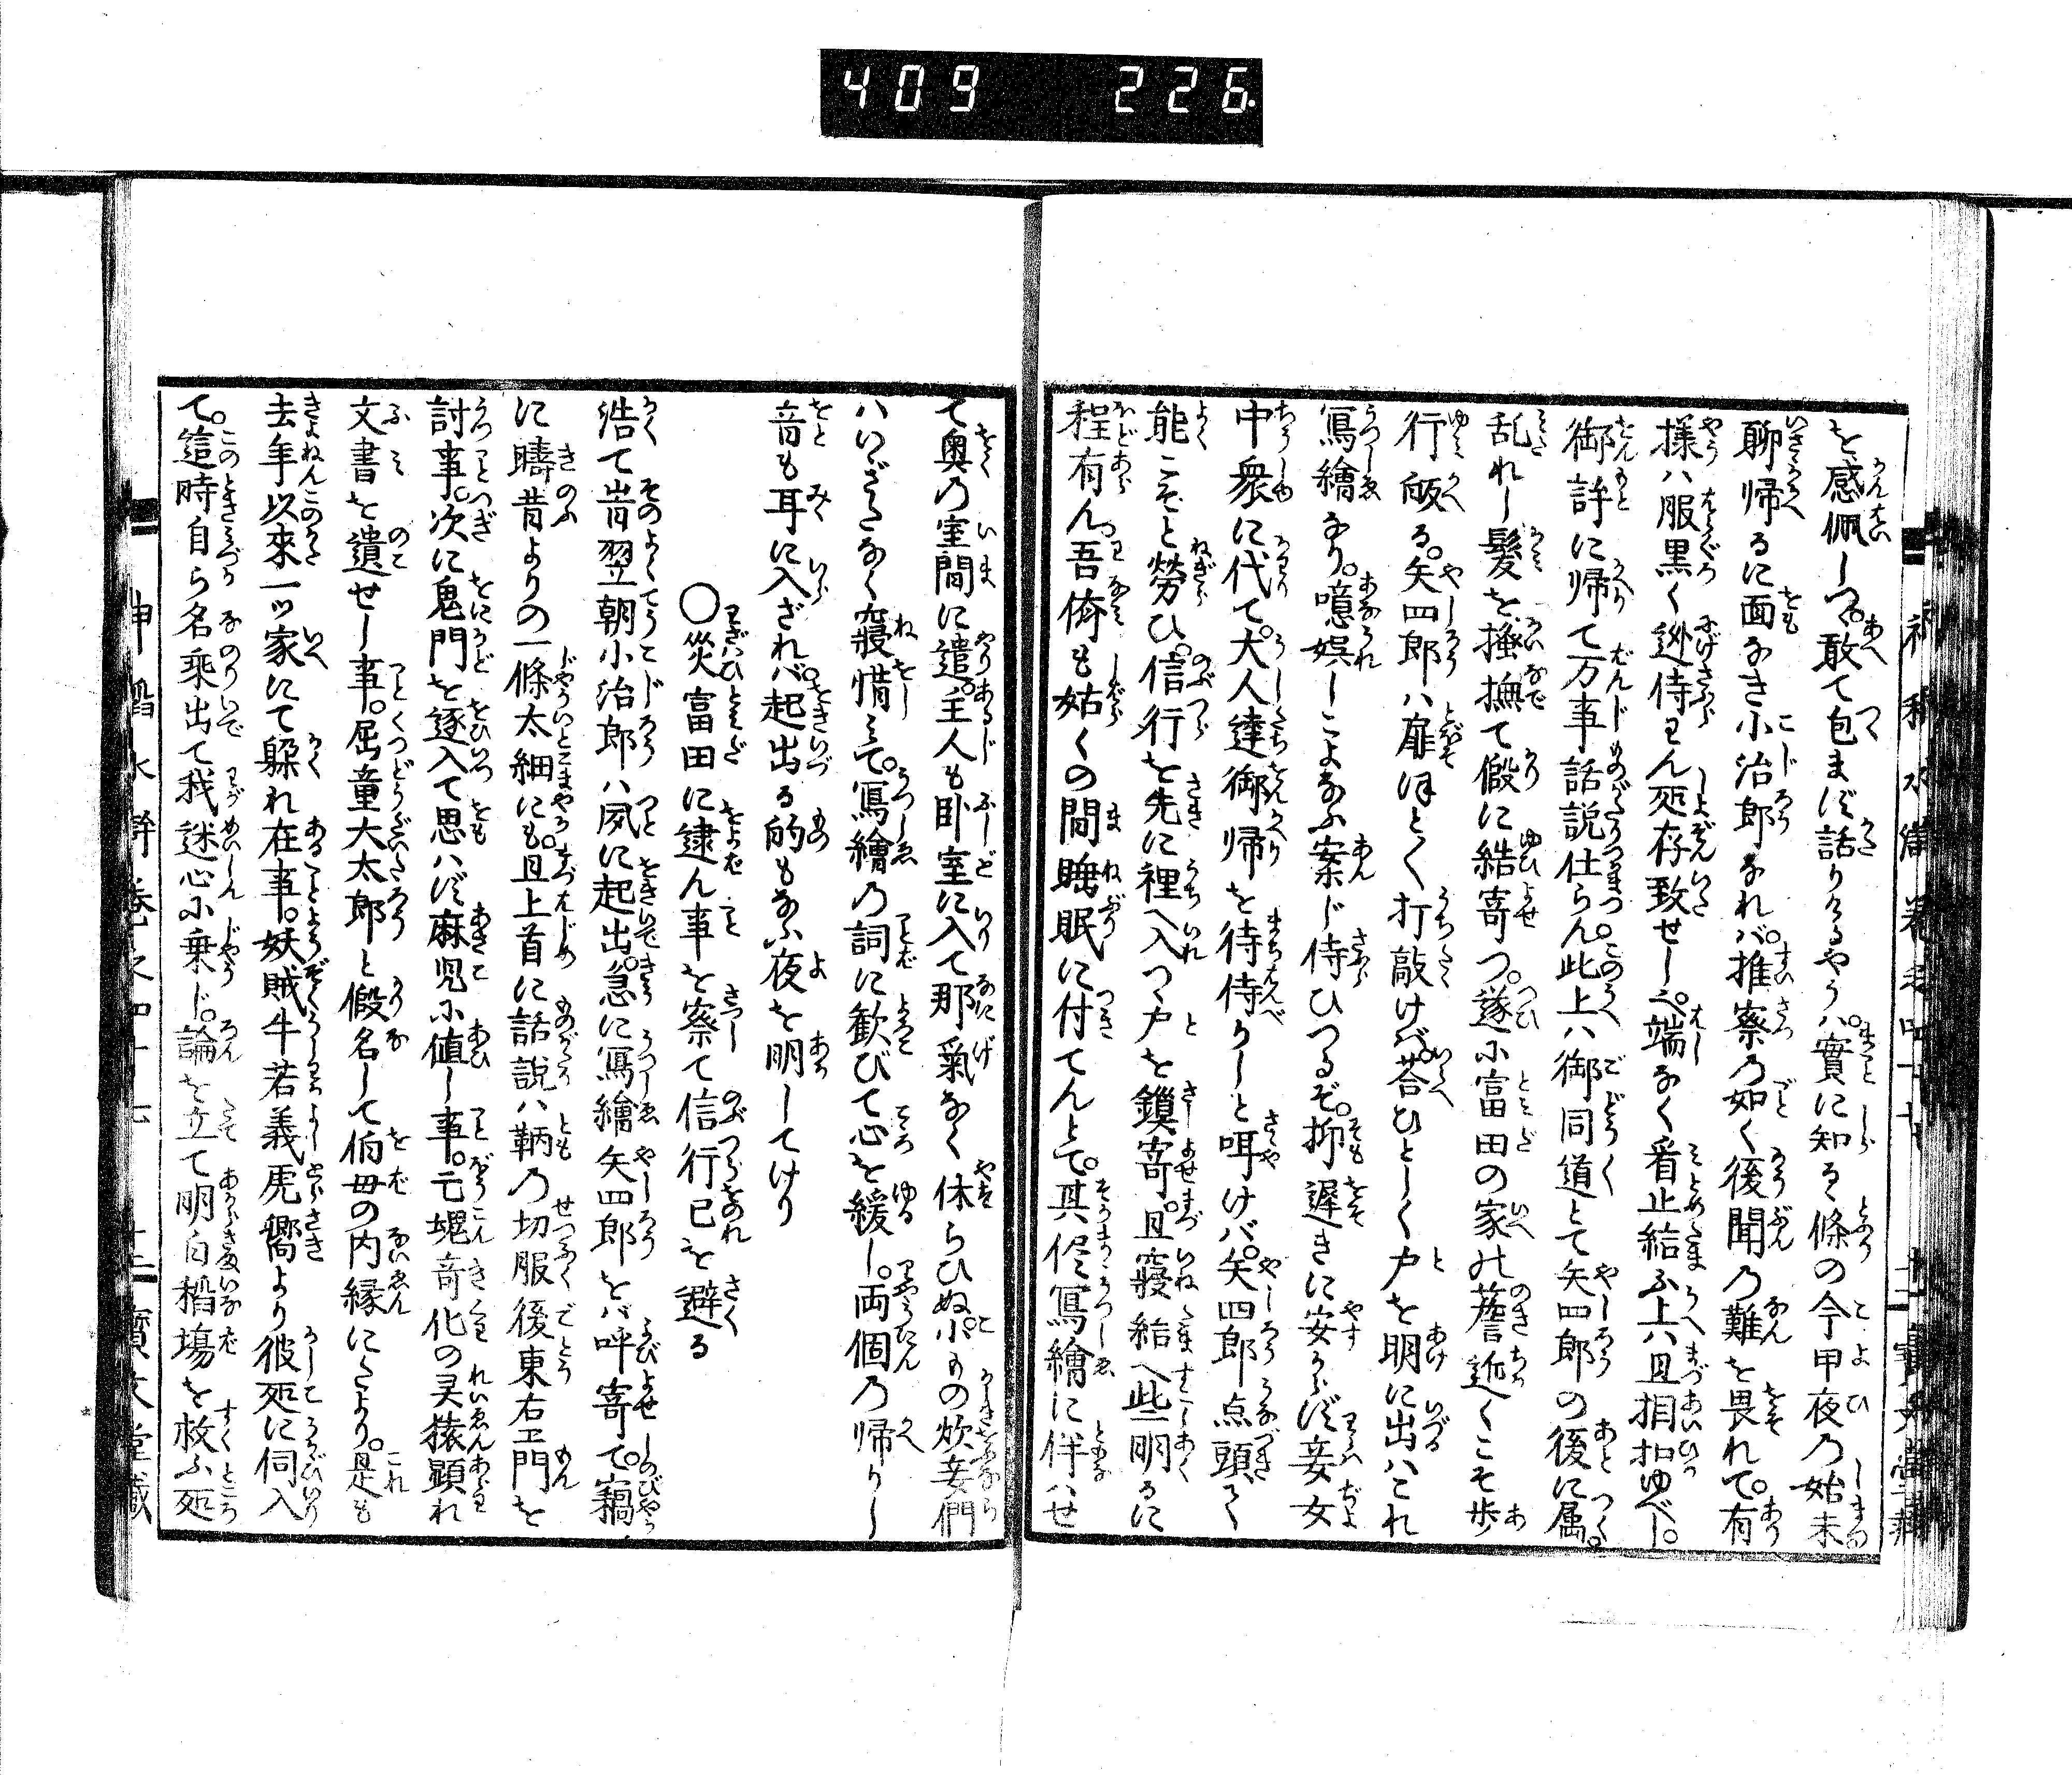 409 226
を感佩しつ。敢て包まず話りけるやう。實に知る條の今甲夜乃始末
聊帰るに面なき小治郎なれバ。推察乃如く後聞乃難を畏れて。有
様ハ服黒く迯侍らん処存致せしぺ。端なく看止給ふ上ハ且相扣ゆべし。
御許に帰て万事話説仕らん。此上ハ御同道とて矢四郎の後に属。
乱れし髪を掻撫て假に結寄つ。遂に富田の家の簷近くこそ歩
行皈る。矢四郎ハ扉ほと〳〵打敲けバ。荅ひとしく戸を明に出ハこれ
寫繪なり。噫娯しこよなふ案じ侍ひつるぞ。抑遅きに安からず妾女
中衆に代て。大人達御帰を待侍りしと咡けバ。矢四郎点頭て
能こそと勞ひ。信行を先に裡へ入つ戸を鎖寄。且寝給へ些明るに
程有ん。吾儕も姑くの間睡眠に付てんとて。其侭寫繪に伴ハせ
て奥乃室間に遣。主人も卧室に入て那氣なく休らひぬ。小もの炊妾們
ハいざたなく寝惜みて。寫繪乃詞に歓びて心を緩し。両個乃帰りし
音も耳に入ざれバ。起出る的もなふ夜を明してけり
〇災富田に逮ん事を察て信行已を避る
浩て旹翌朝小治郎ハ夙に起出。急に寫繪矢四郎をバ呼寄て。竊
に疇昔よりの一條太細にも。且上首に話説ハ鞆乃切服後東右エ門を
討事。次に鬼門を逐入て思ハず麻児に値し事。亡魂竒化の灵猿顕れ
文書を遺せし事。屈童大太郎と假名して伯母の内縁にたより。是も
去年以來一ッ家にて躱れ在事。妖賊牛若義虎嚮より彼処に伺入
て。這時自ら名乗出て我迷心に乗じ。論を立て明白稻塲を救ふ処